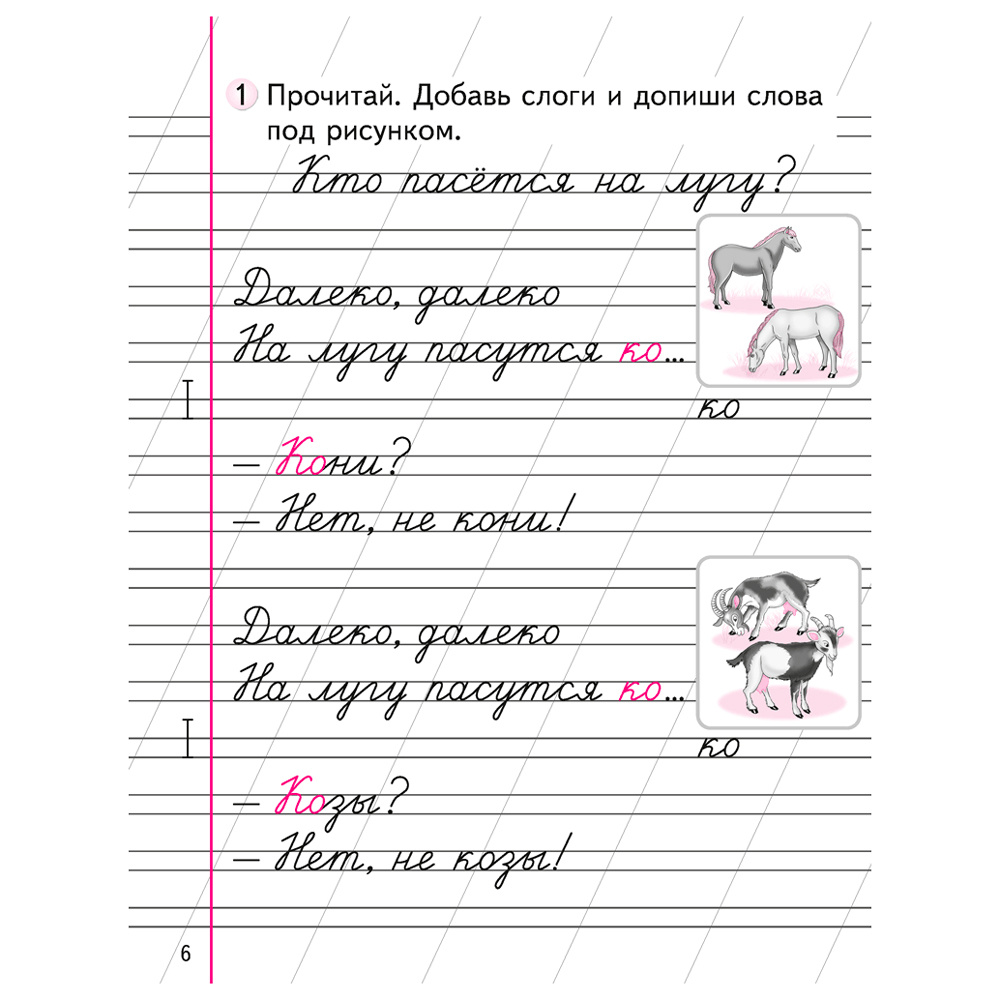 1 Прочитай. Добавь слоги и допиши слова
под рисунком.
Кто пасётся на лугу?
Далеко, далеко
На лугу пасутся ко...
ко
– Кони?
– Нет, не кони!
Далеко, далеко
На лугу пасутся ко...
ко
– Козы?
– Нет, не козы!
6